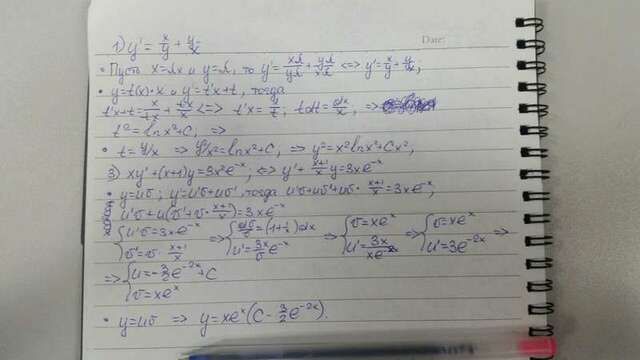 Date:
1) y' = x/y + y/x
• Пусть x=λx и y=λ, то y' = xλ/yλ + yλ/xλ <=> y' = x/y + y/x;
• y=t(x)·x и y=t'x+t, тогда
t'x+t = x/tx + tx/x <=> t'x = 1/t; tdt = dx/x, =>
t² = ln x² + C, =>
• t=y/x => y²/x² = ln x² + C, => y² = x² ln x² + Cx²,
3) xy' + (x+1)y = 3x²e^-x, <=> y' + x+1/x y = 3xe^-x
• y=uv; y'=u'v+uv', тогда u'v+uv'+uv· x+1/x = 3xe^-x,
u'v+u(v'+v· x+1/x) = 3xe^-x
{u'v=3xe^-x => {dv/v = (1+1/x)dx => {v=xe^x => {v=xe^x =>
{v'=v· x+1/x {u' = 3x/v e^-x {u' = 3x/xe^2x {u'=3e^-2x
=> {u=-3/2 e^-2x + C
{v=xe^x
• y=uv => y=xe^x(C - 3/2 e^-2x).